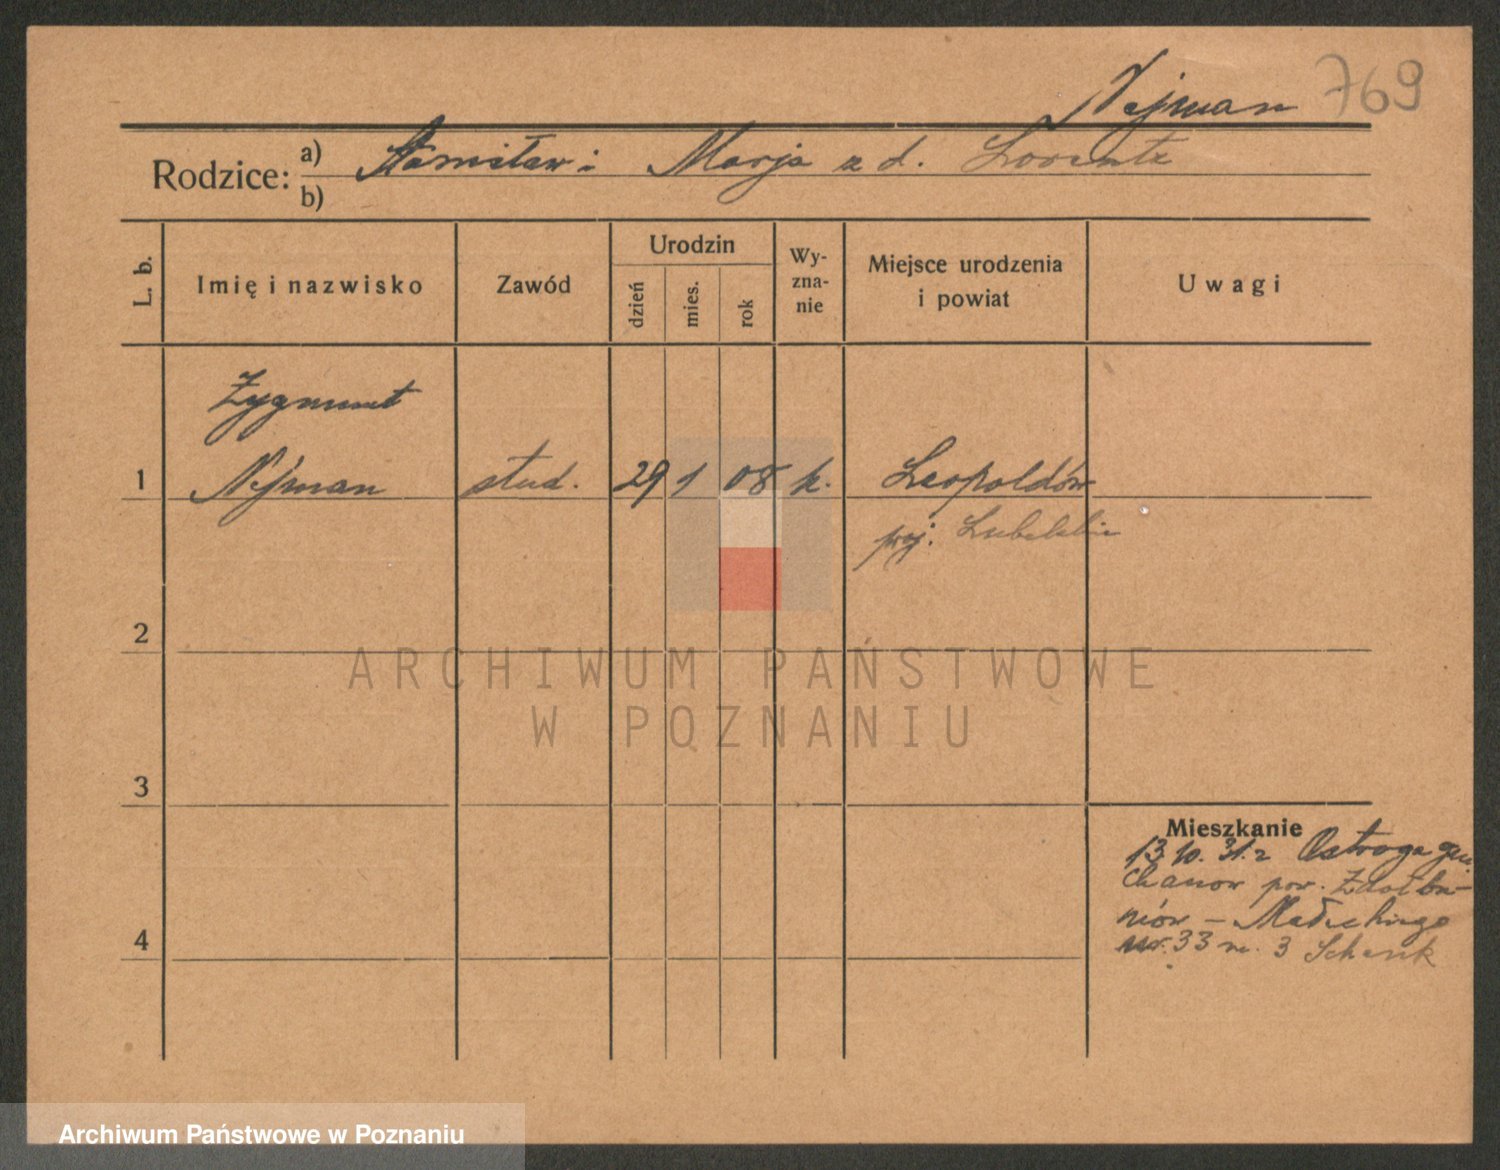 Nejman 769
Rodzice: a) Stanisław i Marja z d. Lorentz
b)
L. b. Imię i nazwisko Zawód Urodzin dzień mies. rok Wy-zna-nie Miejsce urodzenia i powiat Uwagi
Zygmunt
1 Nejman stud. 29 1 08 k. Leopoldów
woj. Lubelskie
2
ARCHIWUM PAŃSTWOWE
W POZNANIU
3
Mieszkanie
13.10.31. z Ostroga
pow. Zdołbu-
nów - Małeckiego
4
33 m. 3 Schenk
Archiwum Państwowe w Poznaniu